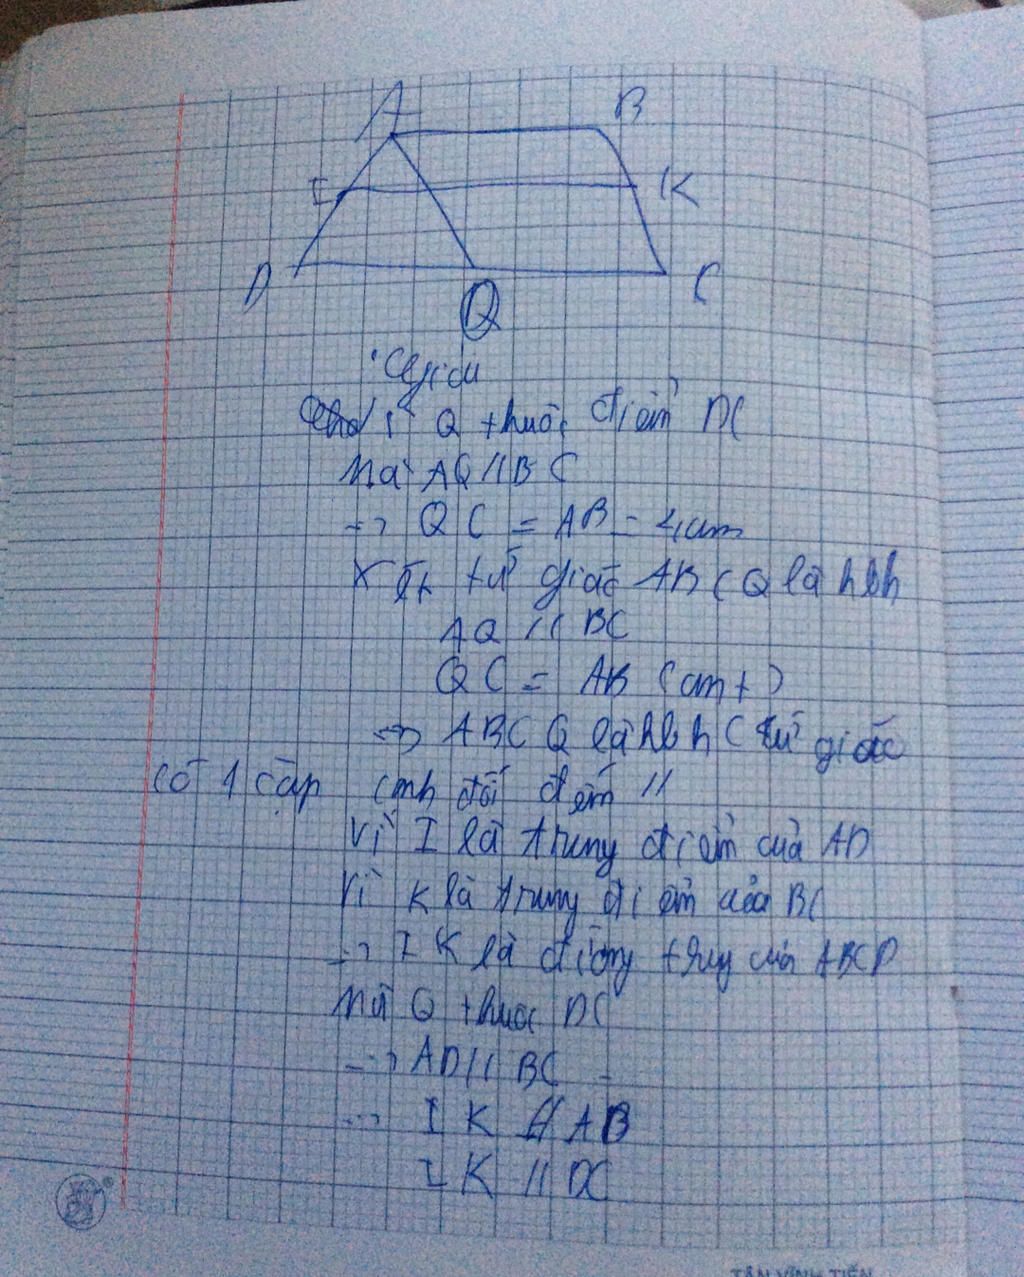 A B
I K
D Q C
Giải
Q thuộc điểm DC
Mà AQ // BC
=> QC = AB = 4cm
Xét tứ giác ABCQ là hbh
AQ // BC
QC = AB (cmt)
=> ABCQ là hbh (tứ giác
có 1 cặp cạnh đối //
Vì I là trung điểm của AD
Vì K là trung điểm của BC
=> IK là đường của ABCD
Mà Q thuộc DC
=> AD // BC
=> IK // AB
IK // DC
TÂN VĨNH TIẾN